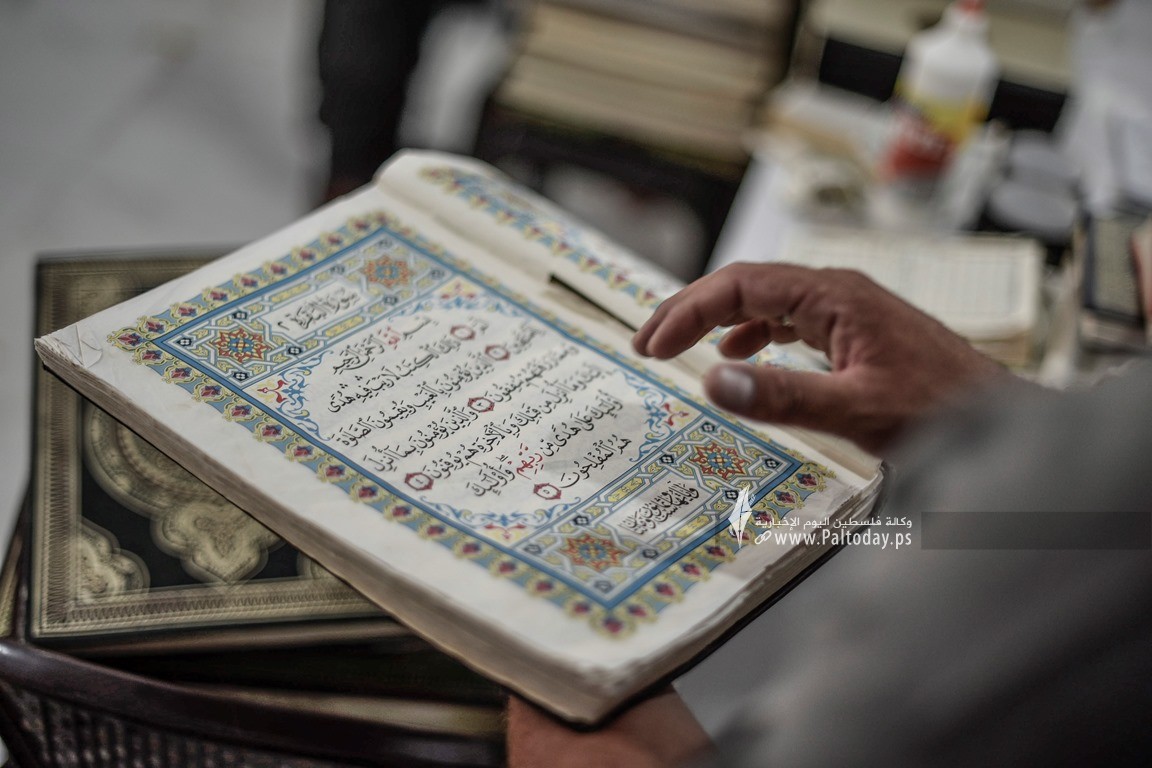 سُورَةُ الْبَقَرَةِ ٢
بِسْمِ اللَّهِ الرَّحْمَٰنِ الرَّحِيمِ
الٓمٓ ١ ذَٰلِكَ الْكِتَابُ لَا رَيْبَ فِيهِ هُدًى
لِلْمُتَّقِينَ ٢ الَّذِينَ يُؤْمِنُونَ بِالْغَيْبِ وَيُقِيمُونَ الصَّلَاةَ
وَمِمَّا رَزَقْنَاهُمْ يُنْفِقُونَ ٣ وَالَّذِينَ يُؤْمِنُونَ بِمَا أُنْزِلَ
إِلَيْكَ وَمَا أُنْزِلَ مِنْ قَبْلِكَ وَبِالْآخِرَةِ هُمْ يُوقِنُونَ ٤
أُولَٰئِكَ عَلَىٰ هُدًى مِنْ رَبِّهِمْ وَأُولَٰئِكَ
هُمُ الْمُفْلِحُونَ ٥
وكالة فلسطين اليوم الإخبارية
www.Paltoday.ps